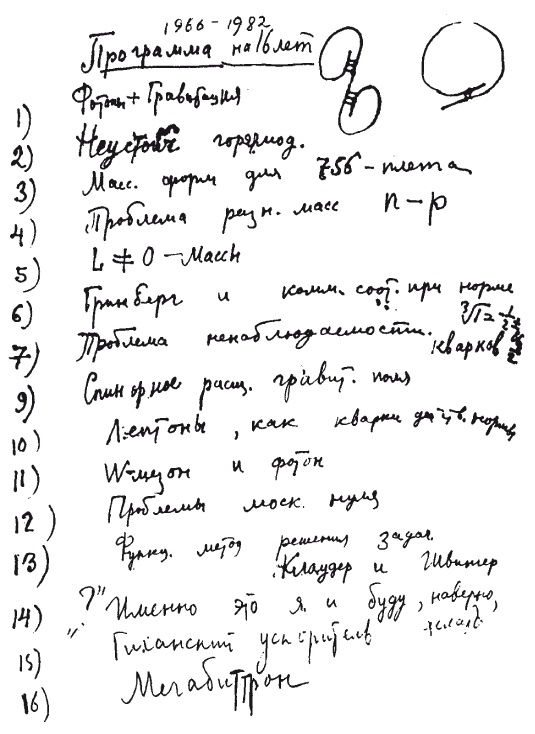 1966-1982
Программа на 16 лет
1) Фотоны + Гравитация
2) Неустойч горемод.
3) Масс. форм для 756-плета
4) Проблема разн. масс n-p
5) L ≠ 0 - Массы
6) Гринберг и комм. соот. при норме
7) Проблема ненаблюдаемости. кварков
9) Спинорное расщ. гравит. поля
10) Лептоны, как кварки
11) W-мезон и фотон
12) Проблемы моск. нуля
13) Функц. метод решения задач.
Клаудер и Швингер
14) "?" Именно это я и буду, наверно,
15) ускоритель
16) Мегабиттрон